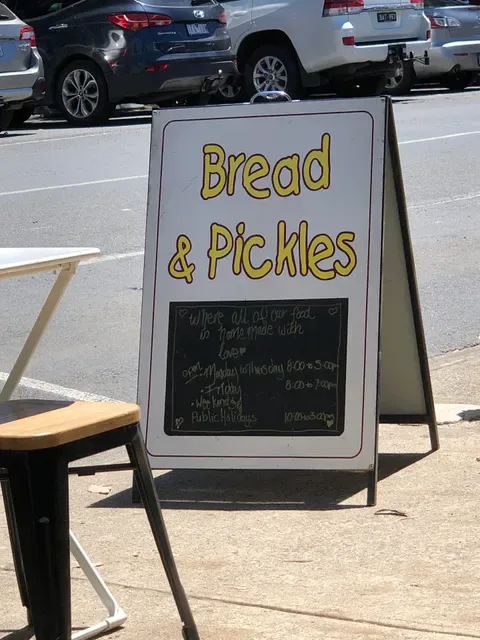 Bread
& Pickles
Where all of our food
is home made with
love
open Monday to Thursday 8:00 to 5:00pm
Friday 8:00 to 7:00pm
Weekend &
Public Holidays 10:00 to 3:00pm